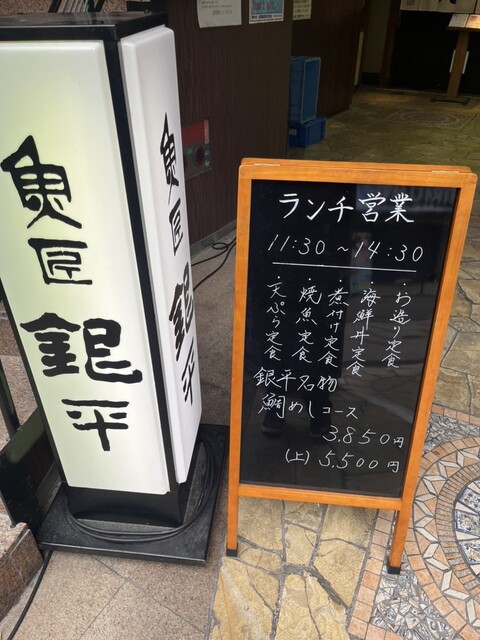 魚匠 銀平
魚匠 銀平
ランチ営業
11:30～14:30
・お造り定食
・海鮮丼定食
・煮付け定食
・焼魚定食
・天ぷら定食
銀平名物
鯛めしコース
3,850円
(上) 5,500円